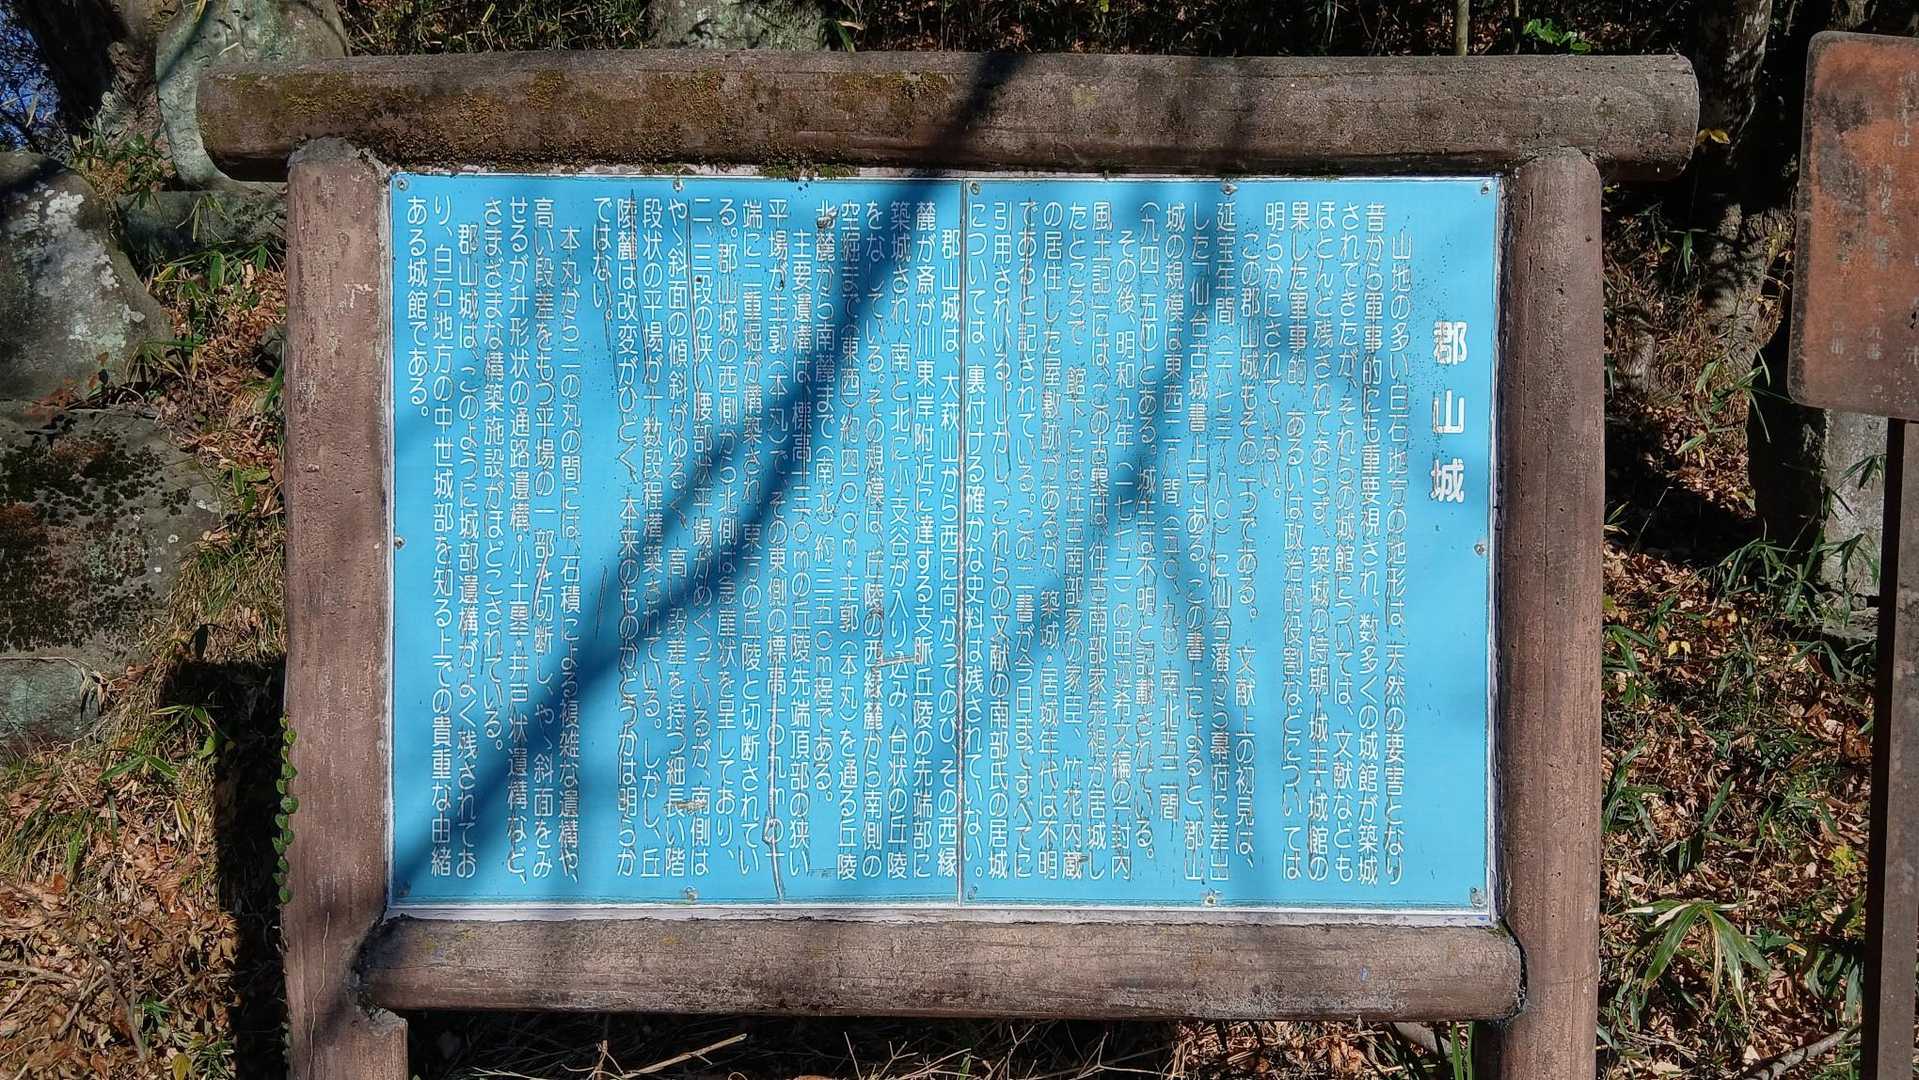 郡山城
山地の多い白石地方の地形は、天然の要害となり
昔から軍事的にも重要視され、数多くの城館が築城
されてきたが、それらの城館については、文献なども
ほとんど残されておらず、築城の時期・城主・城館の
果した軍事的、あるいは政治的役割などについては
明らかにされていない。
この郡山城もその一つである。文献上の初見は、
延宝年間(一六七三〜八〇)に仙台藩から幕府に差出
した「仙台古城書上」である。この書上によると、郡山
城の規模は東西二八間
城主は不明と記載されている。
その後、明和九年(一七七二)の田辺希文編の「封内
風土記」には、この古塁は、往古南部家先祖が居城し
たところで、館下には往古南部家の家臣、竹花内蔵
の居住した屋敷跡があるが、築城・居城年代は不明
であると記されている。この二書が今日まですべてに
引用されている。しかし、これらの文献の南部氏の居城
については、裏付ける確かな史料は残されていない。
郡山城は、大萩山から西に向かってのび、その西縁
麓が斎が川東岸附近に達する支脈丘陵の先端部に
築城され、南と北に小支谷が入り込み、台状の丘陵
をなしている。その規模は、丘陵の西縁麓から南側の
空堀まで(東西)約四〇〇m・主郭(本丸)を通る丘陵
北麓から南麓まで(南北)約三五〇m程である。
主要遺構は、標高一三〇mの丘陵先端頂部の狭い
平場が主郭(本丸)で、その東側の標高一〇九mの十
端に二重堀が構築され、東方の丘陵と切断されてい
る。郡山城の西側から北側は急崖状を呈しており、
二、三段の狭い腰部状平場がめぐっているが、南側は
やゝ斜面の傾斜がゆるく、高い段差を持つ細長い階
段状の平場が十数段程構築されている。しかし、丘
陵麓は改変がひどく、本来のものかどうかは明らか
ではない。
本丸から二の丸の間には、石積による複雑な遺構や、
高い段差をもつ平場の一部を切断し、やゝ斜面をみ
せるが升形状の通路遺構・小土塁・井戸状遺構など、
さまざまな構築施設がほどこされている。
郡山城は、このように城部遺構がよく残されてお
り、白石地方の中世城部を知る上での貴重な由緒
ある城館である。